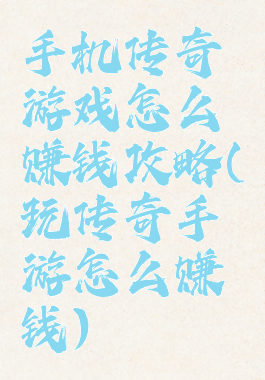 手机传奇
游戏怎么
赚钱攻略(
玩传奇手
游怎么赚
钱)